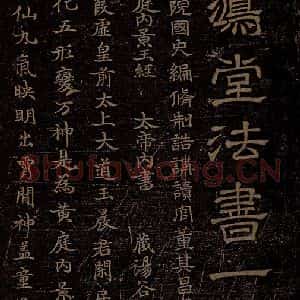 鴻堂法書一
院國史編脩制誥講讀官董其昌
庭內景玉經 太帝內書 藏湯谷
霞虛皇前太上大道玉晨君閒居
化五形變万神是為黃庭內景
仙九氣映明出霄間神蓋童
Shufawang.CN